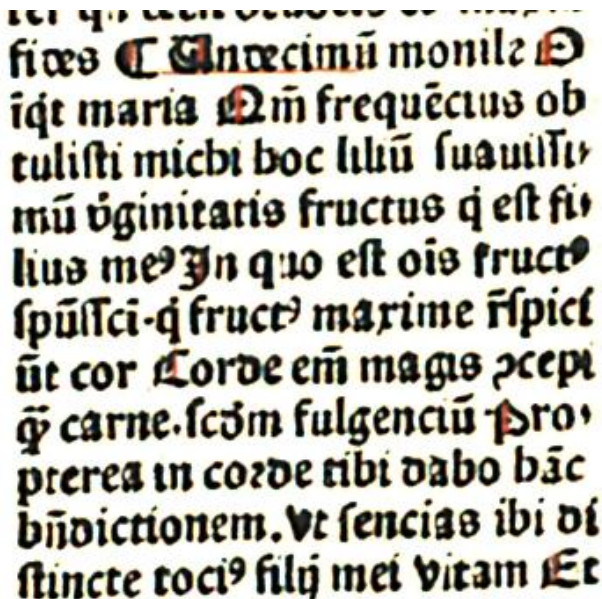 fices ⸿ Undecimū monile O
īq̄t maria Qm̄ frequēcius ob
tulisti michi hoc liliū suauissi⸗
mū v̄ginitatis fructus q̄ est fi⸗
lius meꝰ In quo est oīs fructꝰ
spūssci·q̄ fructꝰ maxime r̄spici
ūt cor Corde em̄ magis ꝯcepi
qꝫ̄ carne.scd̄m fulgenciū Pro⸗
pterea in corde tibi dabo hāc
bn̄dictionem.Vt sencias ibi di
stincte tociꝰ filij mei vitam Et